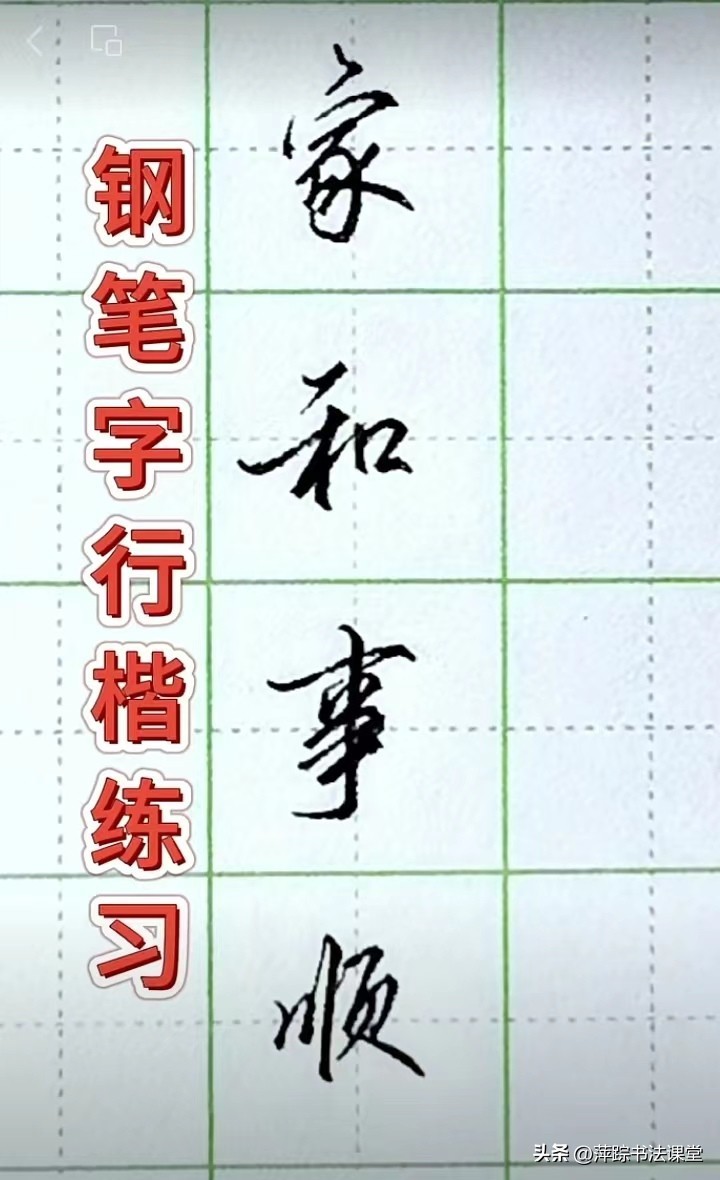 钢笔字行楷练习
家和事顺
头条 @萍踪书法课堂